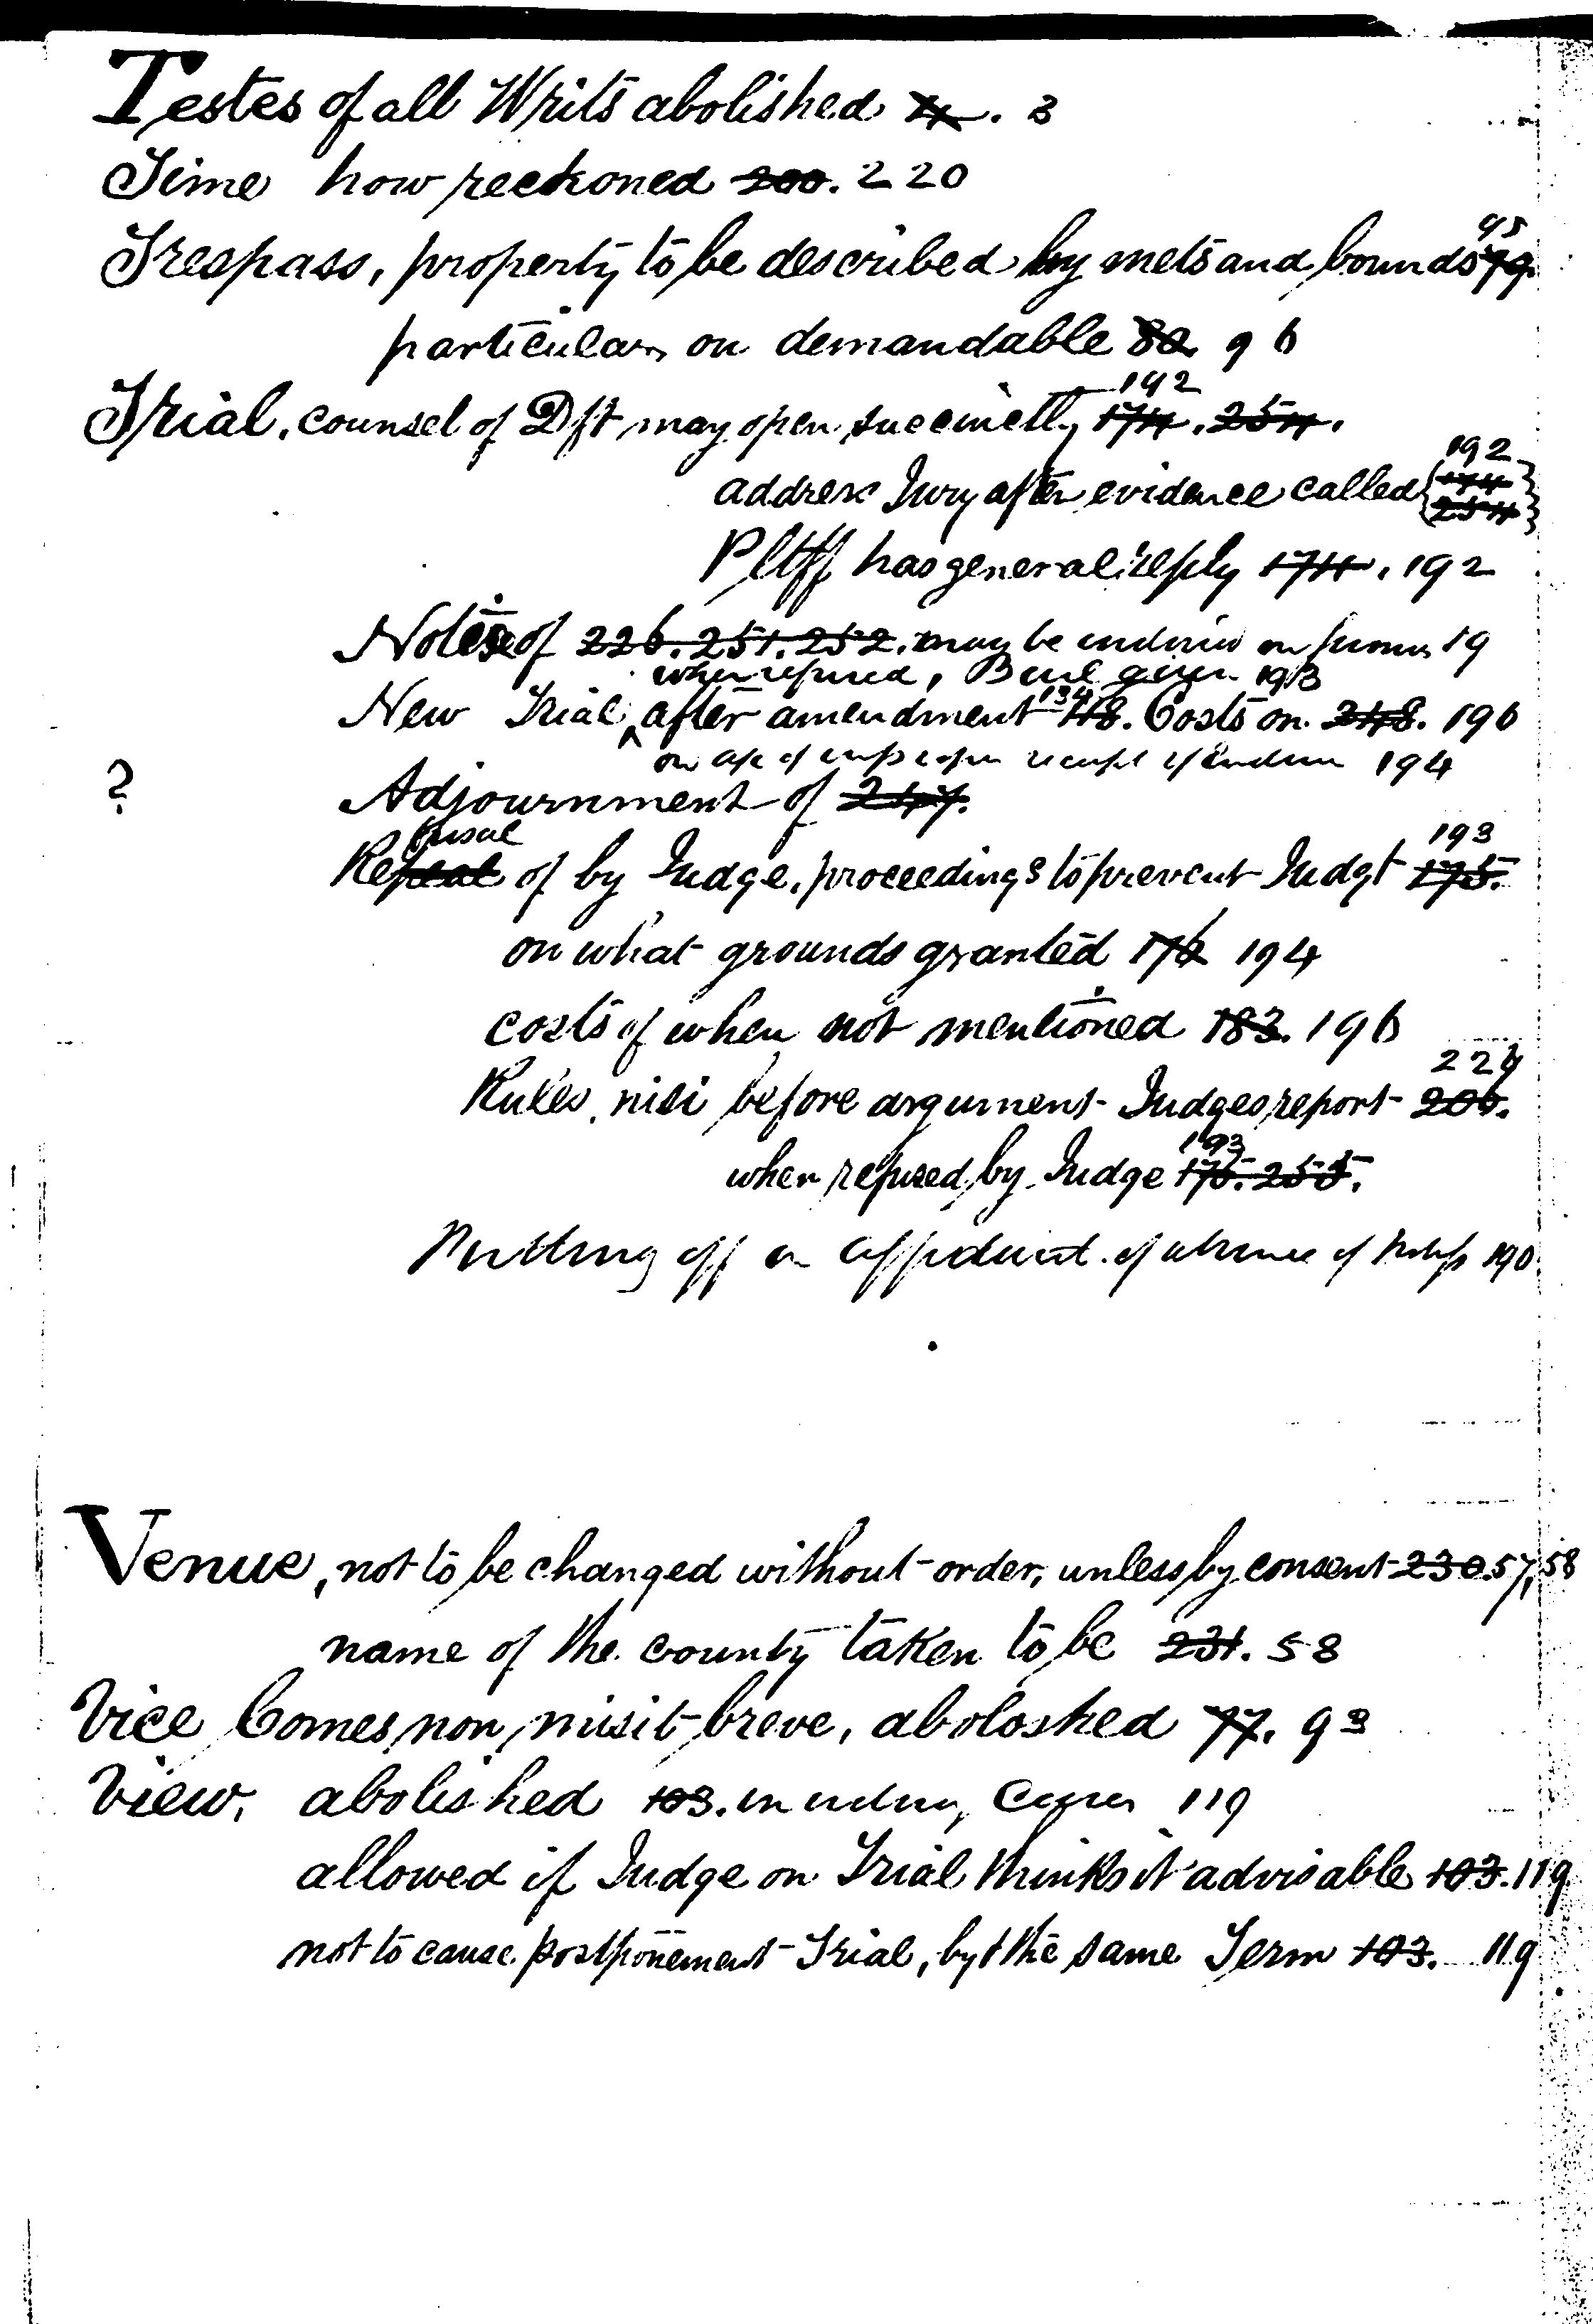 Testes of all Writs abolished 4. 3
Time how reckoned 200. 220
Trespass, property to be described by mets and bounds 79 95
particulars on demandable 80 96
Trial. counsel of Dft may open succinctly 174. 254. 192
address Jury after evidence called 174 254 192
Pltff has general reply 174. 192
Notice of 226. 251. 252. may be on 19
when refused, given 193
New Trial, after amendment 118. 134 Costs on 248. 196
on of improper of 194
? Adjournment of 247.
Repeal fusal of by Judge, proceedings to prevent Judgt 175. 193
on what grounds granted 176 194
costs of when not mentioned 183. 196
Rules nisi before argument Judges report 206. 224
when refused by Judge 175. 255. 193
Putting off on affidavit of absence of 190
Venue, not to be changed without order, unless by consent 230. 57, 58
name of the county taken to be 231. 58
Vice Comes non misit breve, aboloshed 77. 93
View, abolished 103. in 119
allowed if Judge on Trial thinks it advisable 103. 119
not to cause postponement Trial, byt the same Term 103. 119